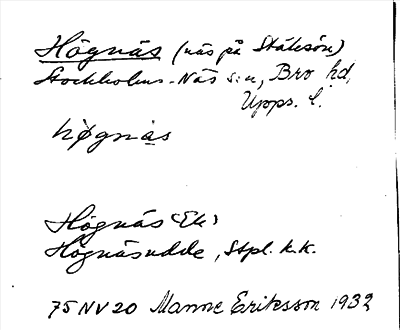 Högnäs (näs på Stäksön)
Stockholms-Näs s:n, Bro hd,
Upps. l.
høgnäs
Högnäs (Ek)
Högnäsudde, Stpl. k.k.
75 NV 20 Manne Eriksson 1932